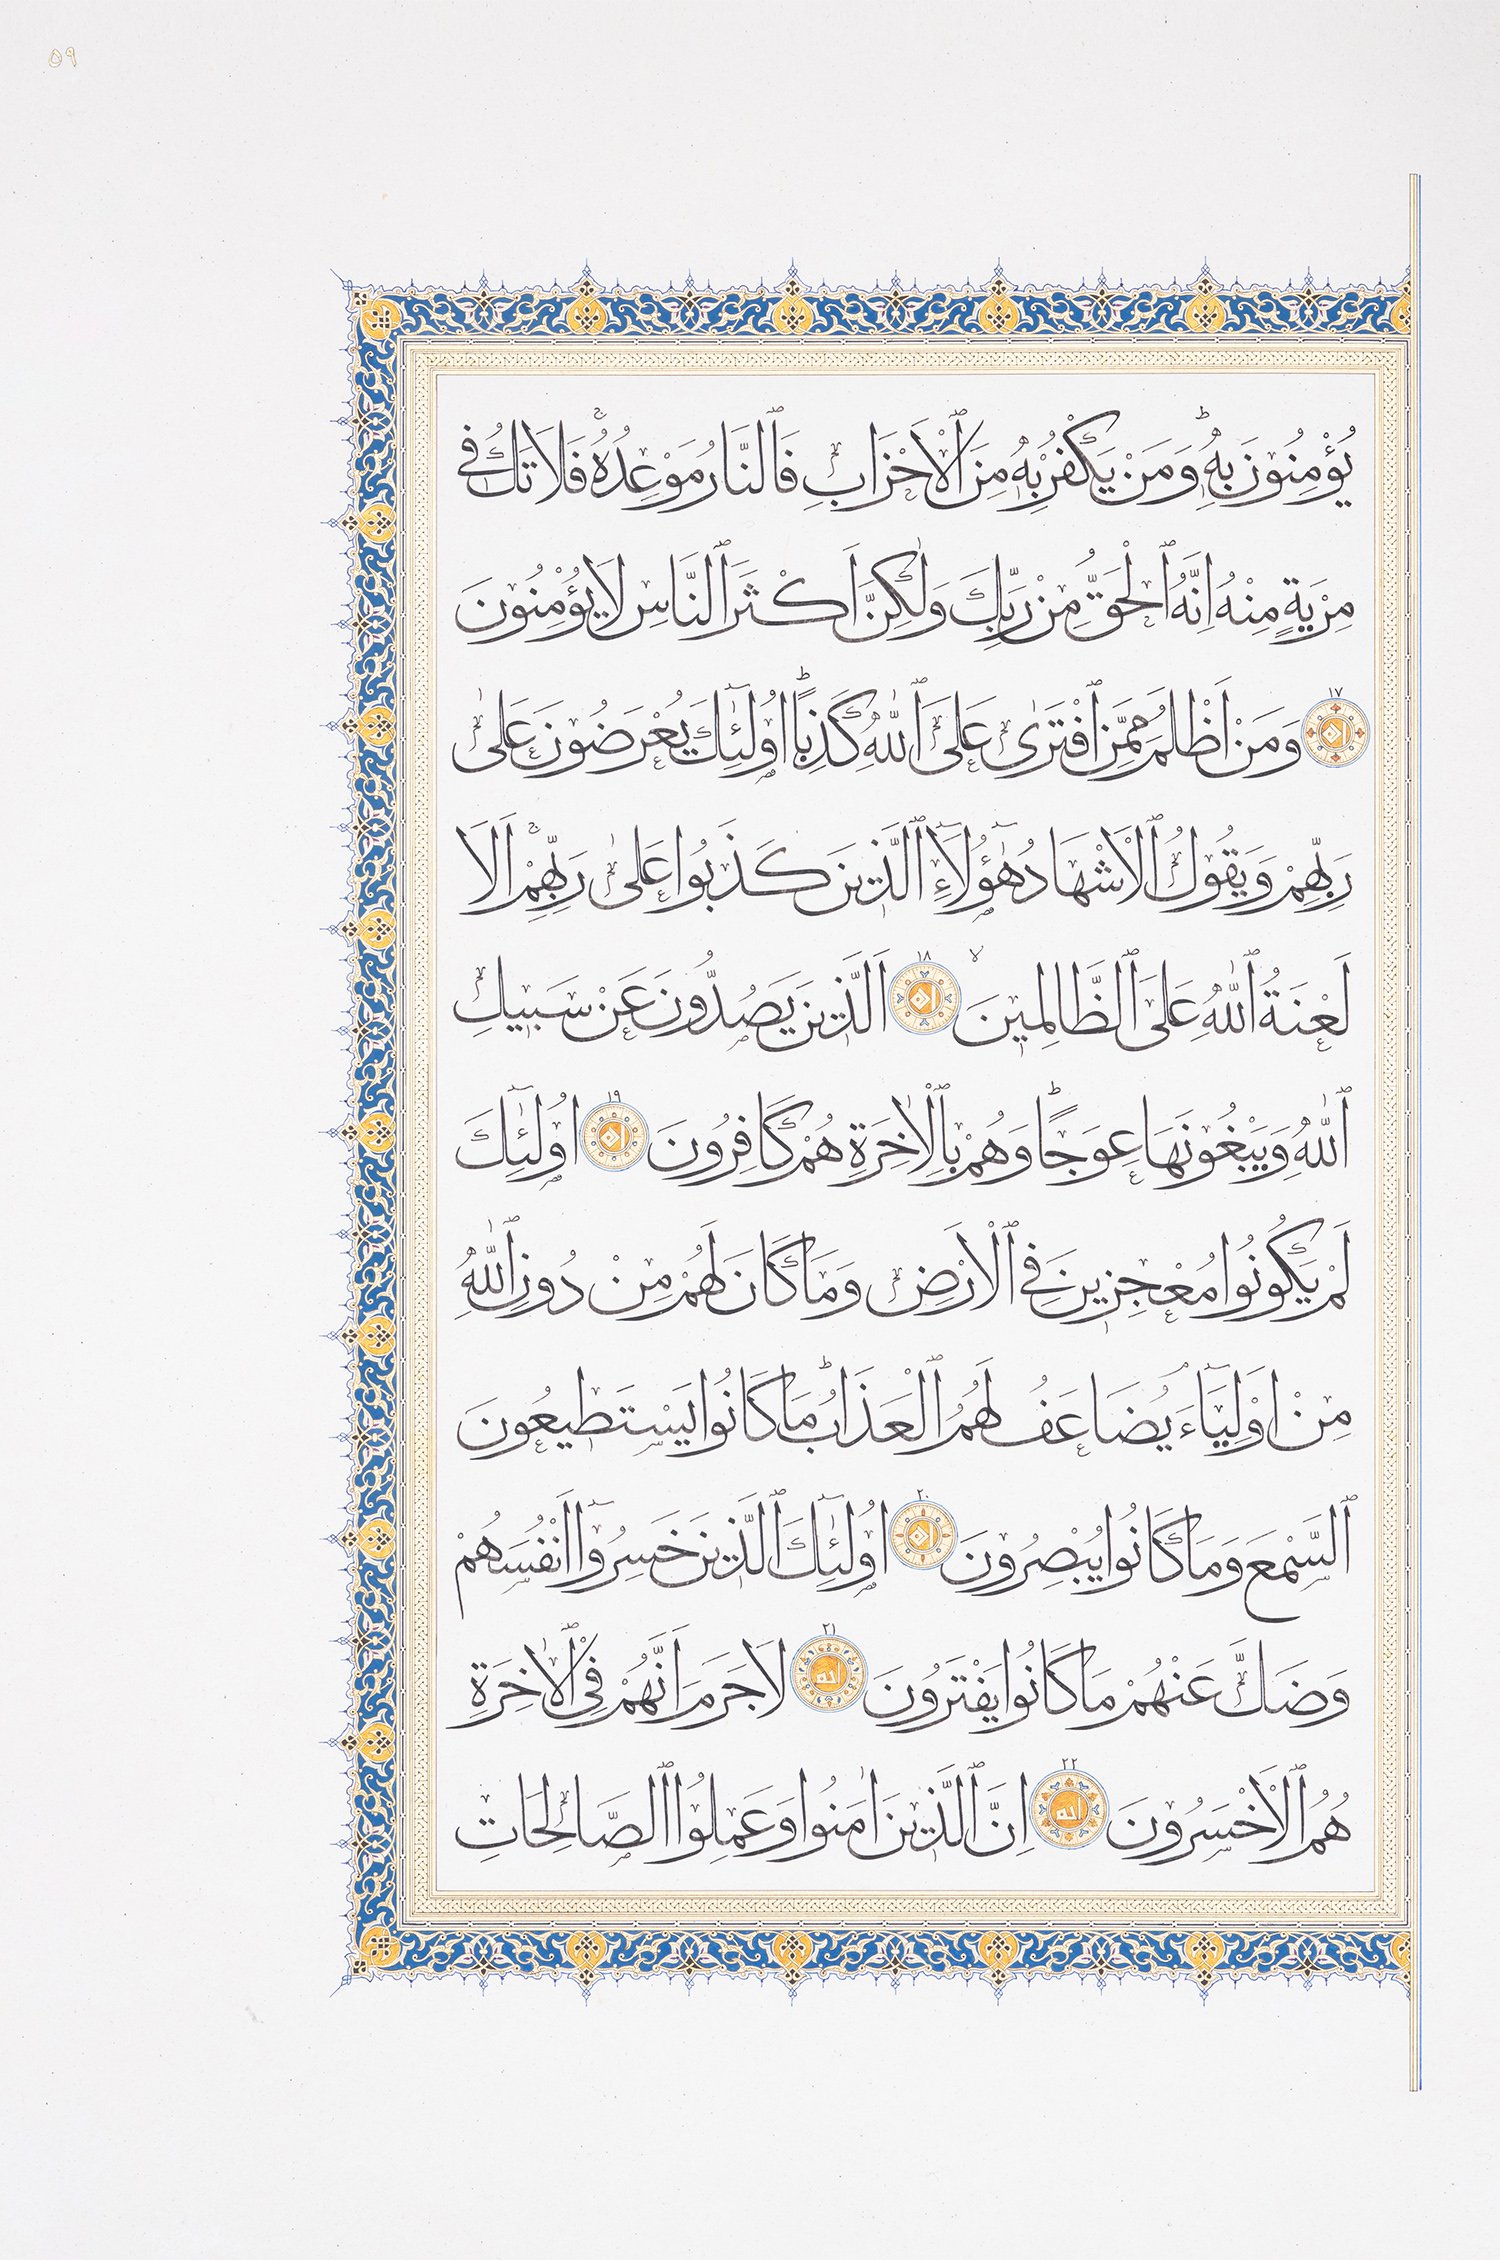 ٥٩
يُؤْمِنُونَ بِهٖۜ وَمَنْ يَكْفُرْ بِهٖ مِنَ ٱلْاَحْزَابِ فَالنَّارُ مَوْعِدُهُۚ فَلَا تَكُ فٖي
مِرْيَةٍ مِنْهُ اِنَّهُ ٱلْحَقُّ مِنْ رَبِّكَ وَلٰكِنَّ اَكْثَرَ ٱلنَّاسِ لَا يُؤْمِنُونَ
١٧ وَمَنْ اَظْلَمُ مِمَّنِ ٱفْتَرٰى عَلَى ٱللّٰهِ كَذِبًاؕ اُولٰٓئِكَ يُعْرَضُونَ عَلٰى
رَبِّهِمْ وَيَقُولُ ٱلْاَشْهَادُ هٰٓؤُلَٓاءِ ٱلَّذٖينَ كَذَبُوا عَلٰى رَبِّهِمْۚ اَلَا
لَعْنَةُ ٱللّٰهِ عَلَى ٱلظَّالِمٖينَۙ ١٨ اَلَّذٖينَ يَصُدُّونَ عَنْ سَبٖيلِ
ٱللّٰهِ وَيَبْغُونَهَا عِوَجًاؕ وَهُمْ بِٱلْاٰخِرَةِ هُمْ كَافِرُونَ ١٩ اُولٰٓئِكَ
لَمْ يَكُونُوا مُعْجِزٖينَ فِي ٱلْاَرْضِ وَمَا كَانَ لَهُمْ مِنْ دُونِ ٱللّٰهِ
مِنْ اَوْلِيَٓاءَۘ يُضَاعَفُ لَهُمُ ٱلْعَذَابُؕ مَا كَانُوا يَسْتَطٖيعُونَ
ٱلسَّمْعَ وَمَا كَانُوا يُبْصِرُونَ ٢٠ اُولٰٓئِكَ ٱلَّذٖينَ خَسِرُٓوا اَنْفُسَهُمْ
وَضَلَّ عَنْهُمْ مَا كَانُوا يَفْتَرُونَ ٢١ لَا جَرَمَ اَنَّهُمْ فِي ٱلْاٰخِرَةِ
هُمُ ٱلْاَخْسَرُونَ ٢٢ اِنَّ ٱلَّذٖينَ اٰمَنُوا وَعَمِلُوا ٱلصَّالِحَاتِ